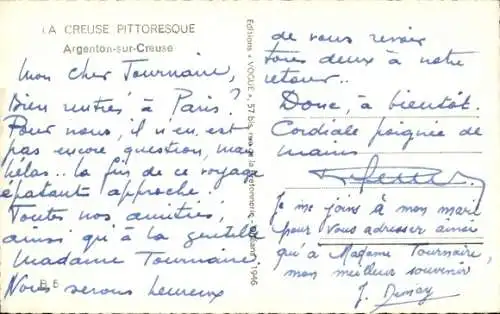 LA CREUSE PITTORESQUE
Argenton-sur-Creuse
Mon cher Tournaire,
Bien rentrés à Paris?
Pour nous, il n'en est
pas encore question, mais
hélas.. la fin de ce voyage
épatant approche!
Toutes nos amitiés,
ainsi qu'à la gentille
Madame Tournaire
Nous serons heureux
Editions « VOGUE », 57 bis, rue de la
1946
de vous revoir
tous deux à notre
retour..
Donc, à bientôt.
Cordiale poignée de
mains
Je me joins à mon mari
pour vous adresser ainsi
qu'à Madame Tournaire,
mon meilleur souvenir
J.